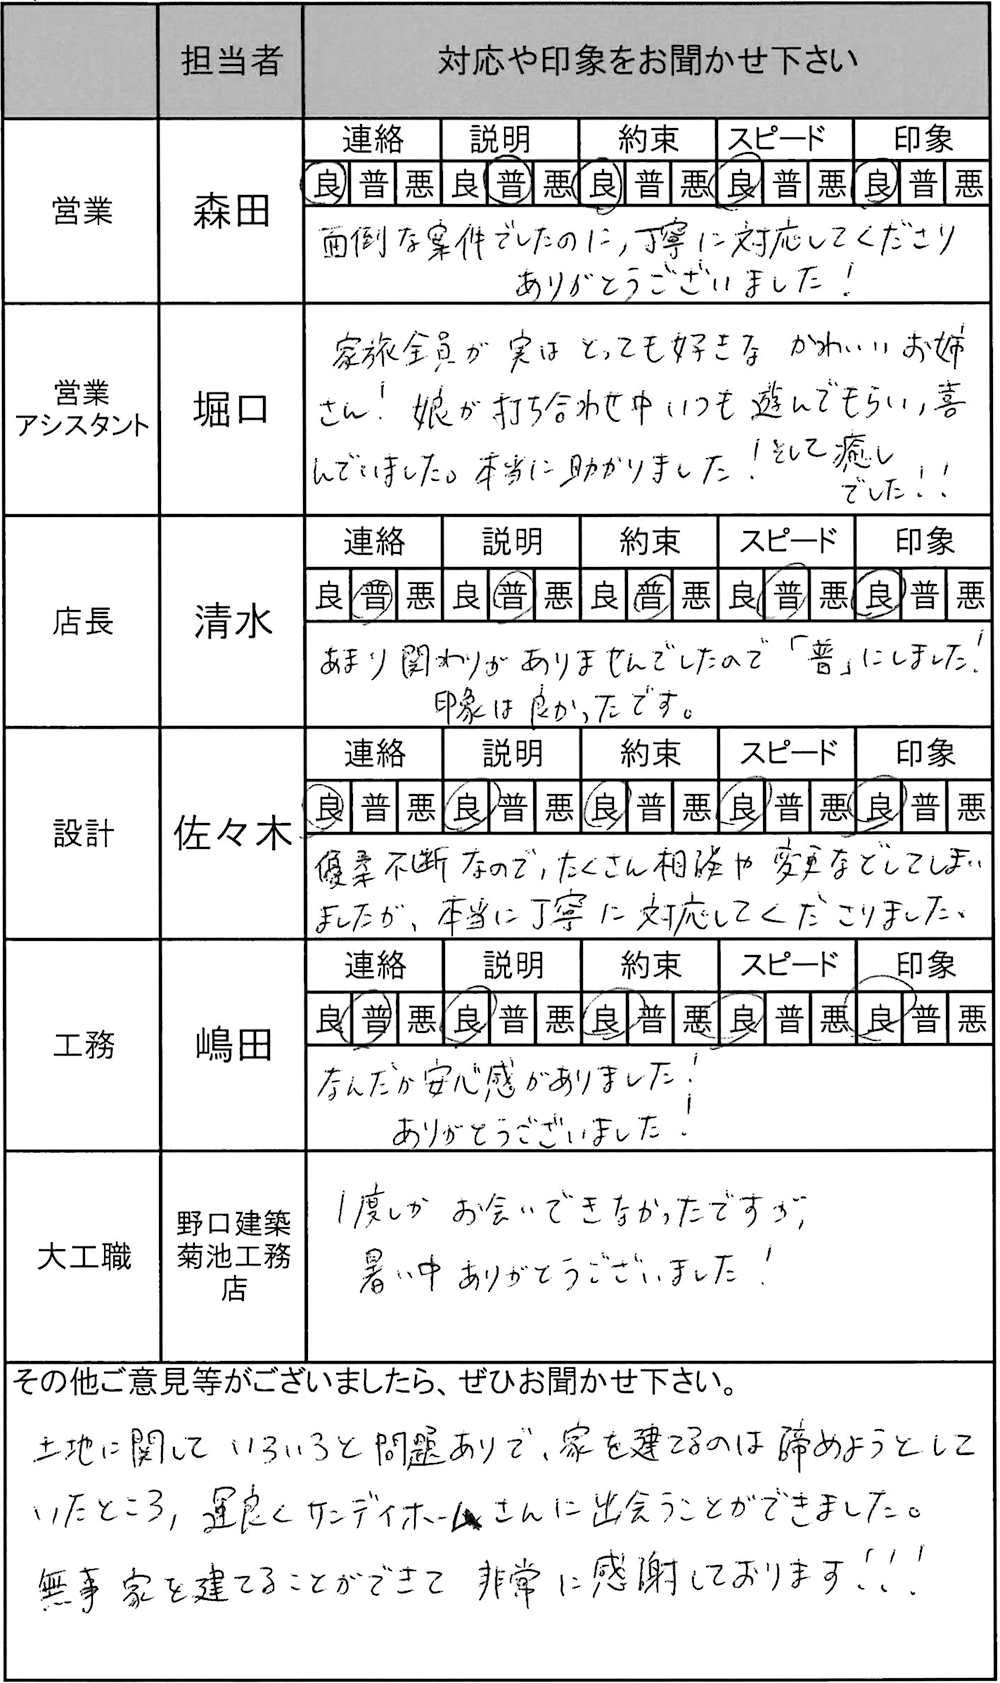 担当者 対応や印象をお聞かせ下さい
連絡 説明 約束 スピード 印象
良 普 悪 良 普 悪 良 普 悪 良 普 悪 良 普 悪
営業 森田
面倒な案件でしたのに,丁寧に対応してくださり
ありがとうございました!
家族全員が 実は とっても好きな かわいい お姉
営業
アシスタント
堀口
さん! 娘が 打ち合わせ中 いつも 遊んでもらい,喜
んでいました。本当に助かりました!そして癒し
でした!!
連絡 説明 約束 スピード 印象
良 普 悪 良 普 悪 良 普 悪 良 普 悪 良 普 悪
店長 清水
あまり 関わりが ありませんでしたので「普」にしました!
印象は 良かったです。
連絡 説明 約束 スピード 印象
良 普 悪 良 普 悪 良 普 悪 良 普 悪 良 普 悪
設計 佐々木
優柔不断なので,たくさん相談や 変更などしてしまい
ましたが、本当に丁寧に 対応してくださりました。
連絡 説明 約束 スピード 印象
良 普 悪 良 普 悪 良 普 悪 良 普 悪 良 普 悪
工務 嶋田
なんだか安心感がありました!
ありがとうございました!
大工職
野口建築
菊池工務
店
1度しか お会いできなかったですが,
暑い中 ありがとうございました!
その他ご意見等がございましたら、ぜひお聞かせ下さい。
土地に関して いろいろと 問題ありで、家を建てるのは 諦めようとして
いたところ, 運良く サンデイホームさんに 出会うことができました。
無事 家を建てることができて 非常に感謝しております!!!